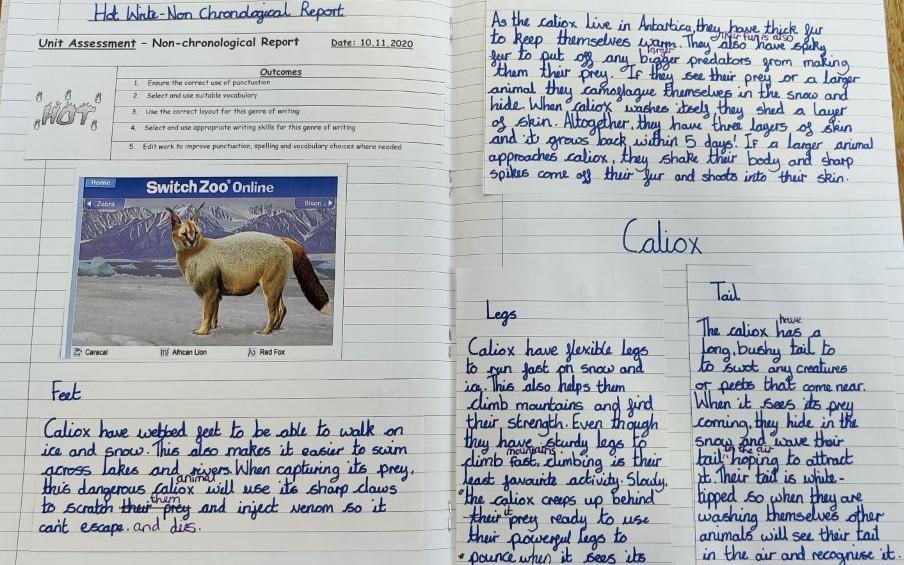 Hot Write-Non Chronological Report
Unit Assessment - Non-chronological Report Date: 10.11.2020
Outcomes
1. Ensure the correct use of punctuation
2. Select and use suitable vocabulary
3. Use the correct layout for this genre of writing
4. Select and use appropriate writing skills for this genre of writing
5. Edit work to improve punctuation, spelling and vocabulary choices where needed
HOT
Home
Switch Zoo Online
Zebra
Bison
Caracal
African Lion
Red Fox
Feet
Caliox have webbed feet to be able to walk on
ice and snow. This also makes it easier to swim
across lakes and rivers. When capturing its prey,
animal
this dangerous caliox will use its sharp claws
them
to scratch their prey and inject venom so it
can't escape. and dies.
As the caliox live in Antartica, they have thick fur
to keep themselves warm. They also have spiky
Their fur is also
larger
fur to put off any bigger predators from making
them their prey. If they see their prey or a larger
animal they camoflague themselves in the snow and
hide. When caliox washes itself, they shed a layer
of skin. Altogether, they have three layers of skin
and it grows back within 5 days! If a larger animal
approaches caliox, they shake their body and sharp
spikes come off their fur and shoots into their skin.
Caliox
Legs
Caliox have flexible legs
to run fast on snow and
ice. This also helps them
climb mountains and find
their strength. Even though
they have sturdy legs to
mountains
climb fast, climbing is their
least favourite activity. Slowly,
the caliox creeps up behind
it
their prey ready to use
their powerful legs to
pounce when it sees its
Tail
have
The caliox has a
long, bushy tail to
to swot any creatures
or pests that come near.
When it sees its prey
coming, they hide in the
snow and wave their
in the air
tail hoping to attract
it. Their tail is white-
tipped so when they are
washing themselves other
animals will see their tail
in the air and recognise it.